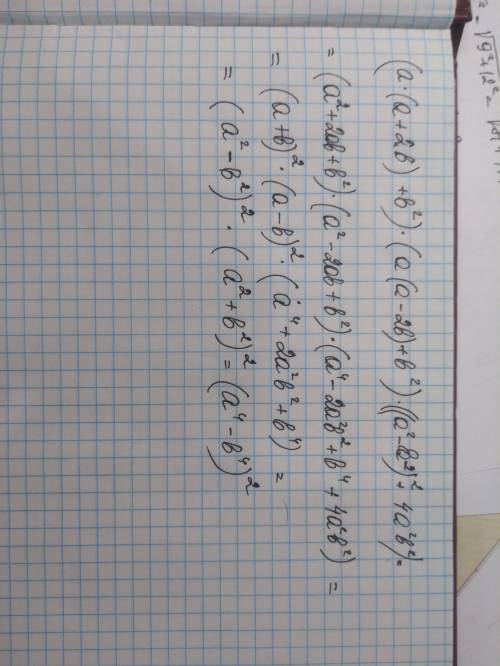 = √9²+12² =
(a·(a+2b)+b²)·(a(a-2b)+b²)·((a²-b²)²+4a²b²)=
=(a²+2ab+b²)·(a²-2ab+b²)·(a⁴-2a²b²+b⁴+4a²b²)=
=(a+b)²·(a-b)²·(a⁴+2a²b²+b⁴)=
=(a²-b²)²·(a²+b²)²=(a⁴-b⁴)²